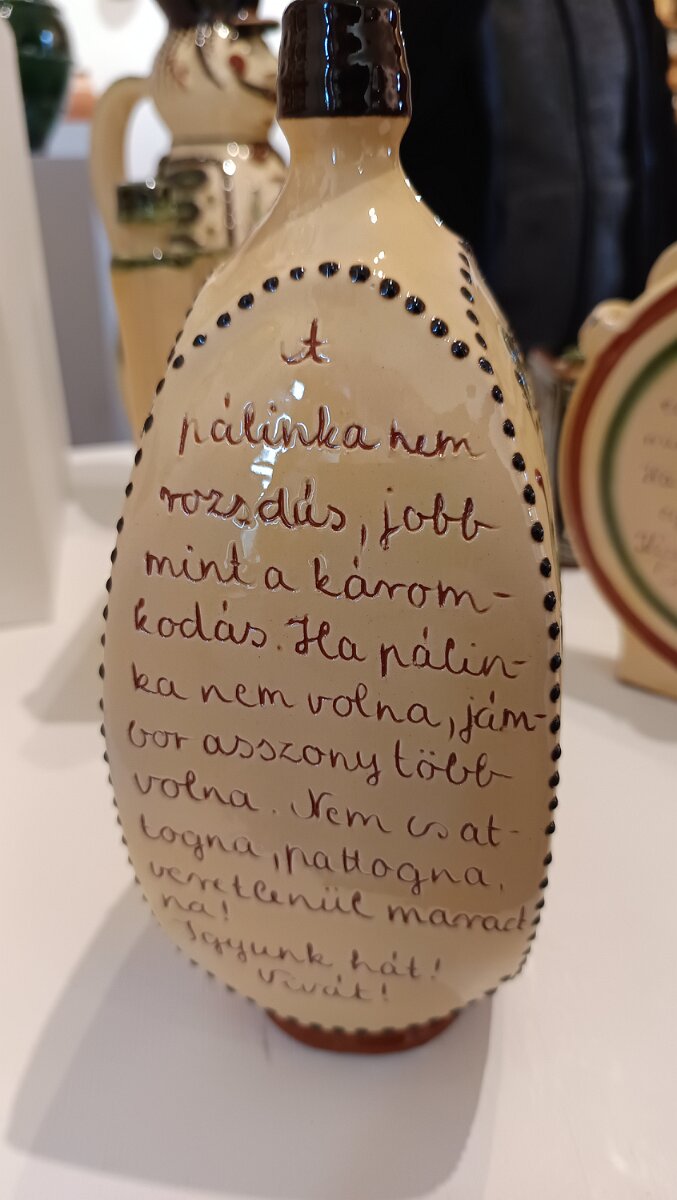 A
pálinka nem
rozsdás, jobb
mint a károm-
kodás. Ha pálin-
ka nem volna, jám-
bor asszony több
volna. Nem csat-
togna, pattogna,
veretlenül marad
na!
Igyunk hát!
Vivát!